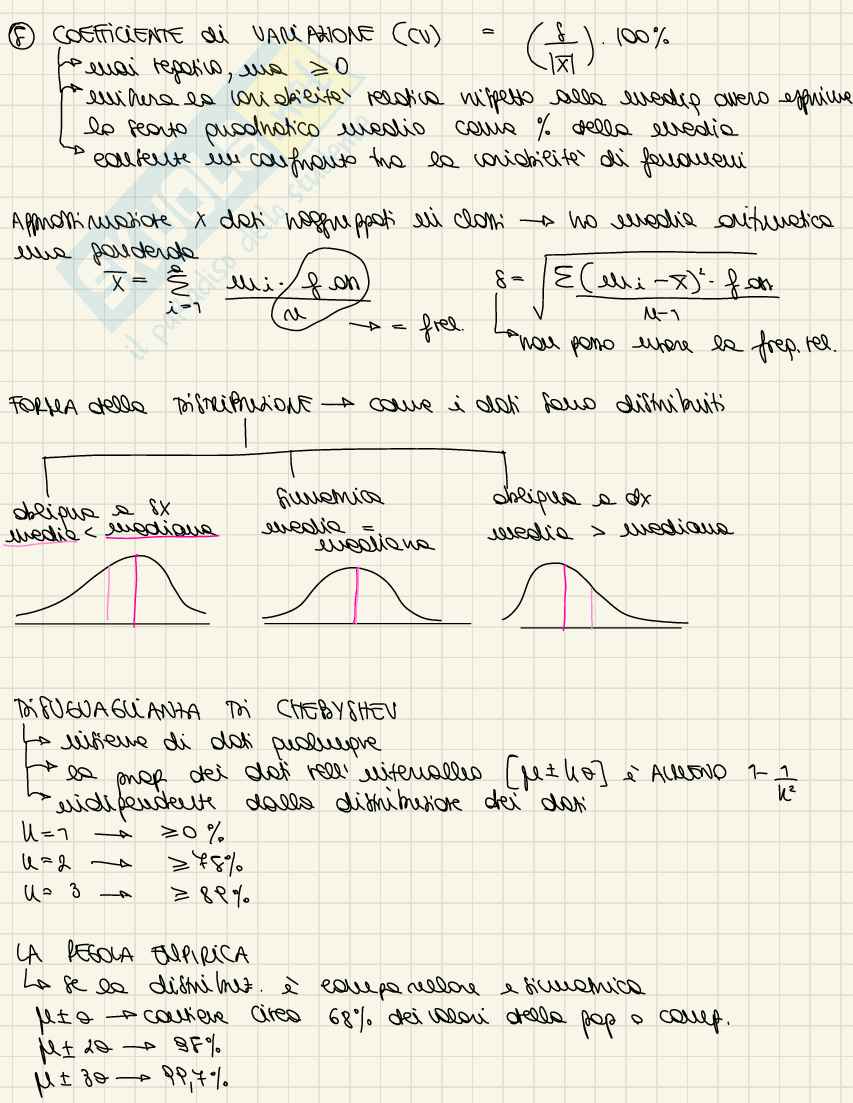 ⑤ COEFFICIENTE di VARIAZIONE (CV) = (s/|x̄|) · 100%
→ mai negativo, ma ≥ 0
→ misura la variabilità relativa rispetto alla media ovvero esprime
lo scarto quadratico medio come % della media
→ consente un confronto tra la variabilità di fenomeni
Approssimazione x dati raggruppati in classi → ho media aritmetica
una ponderata
x̄ = Σ i=1 mi · f ass / n → = f rel. s = √(Σ(mi - x̄)² · f ass / n-1)
↳ non posso usare la freq. rel.
FORMA della DISTRIBUZIONE → come i dati sono distribuiti
obliqua a sx simmetrica obliqua a dx
media < mediana media = mediana media > mediana
DISUGUAGLIANZA DI CHEBYSHEV
→ insieme di dati qualunque
→ la prop dei dati nell' intervallo [μ ± kσ] è ALMENO 1 - 1/k²
→ indipendente dalla distribuzione dei dati
K=1 → ≥0%
K=2 → ≥75%
K= 3 → ≥89%
LA REGOLA EMPIRICA
↳ se la distribuz. è campanulare e simmetrica
μ ± σ → contiene circa 68% dei valori della pop o camp.
μ ± 2σ → 95%
μ ± 3σ → 99,7%
il paradiso dello studente